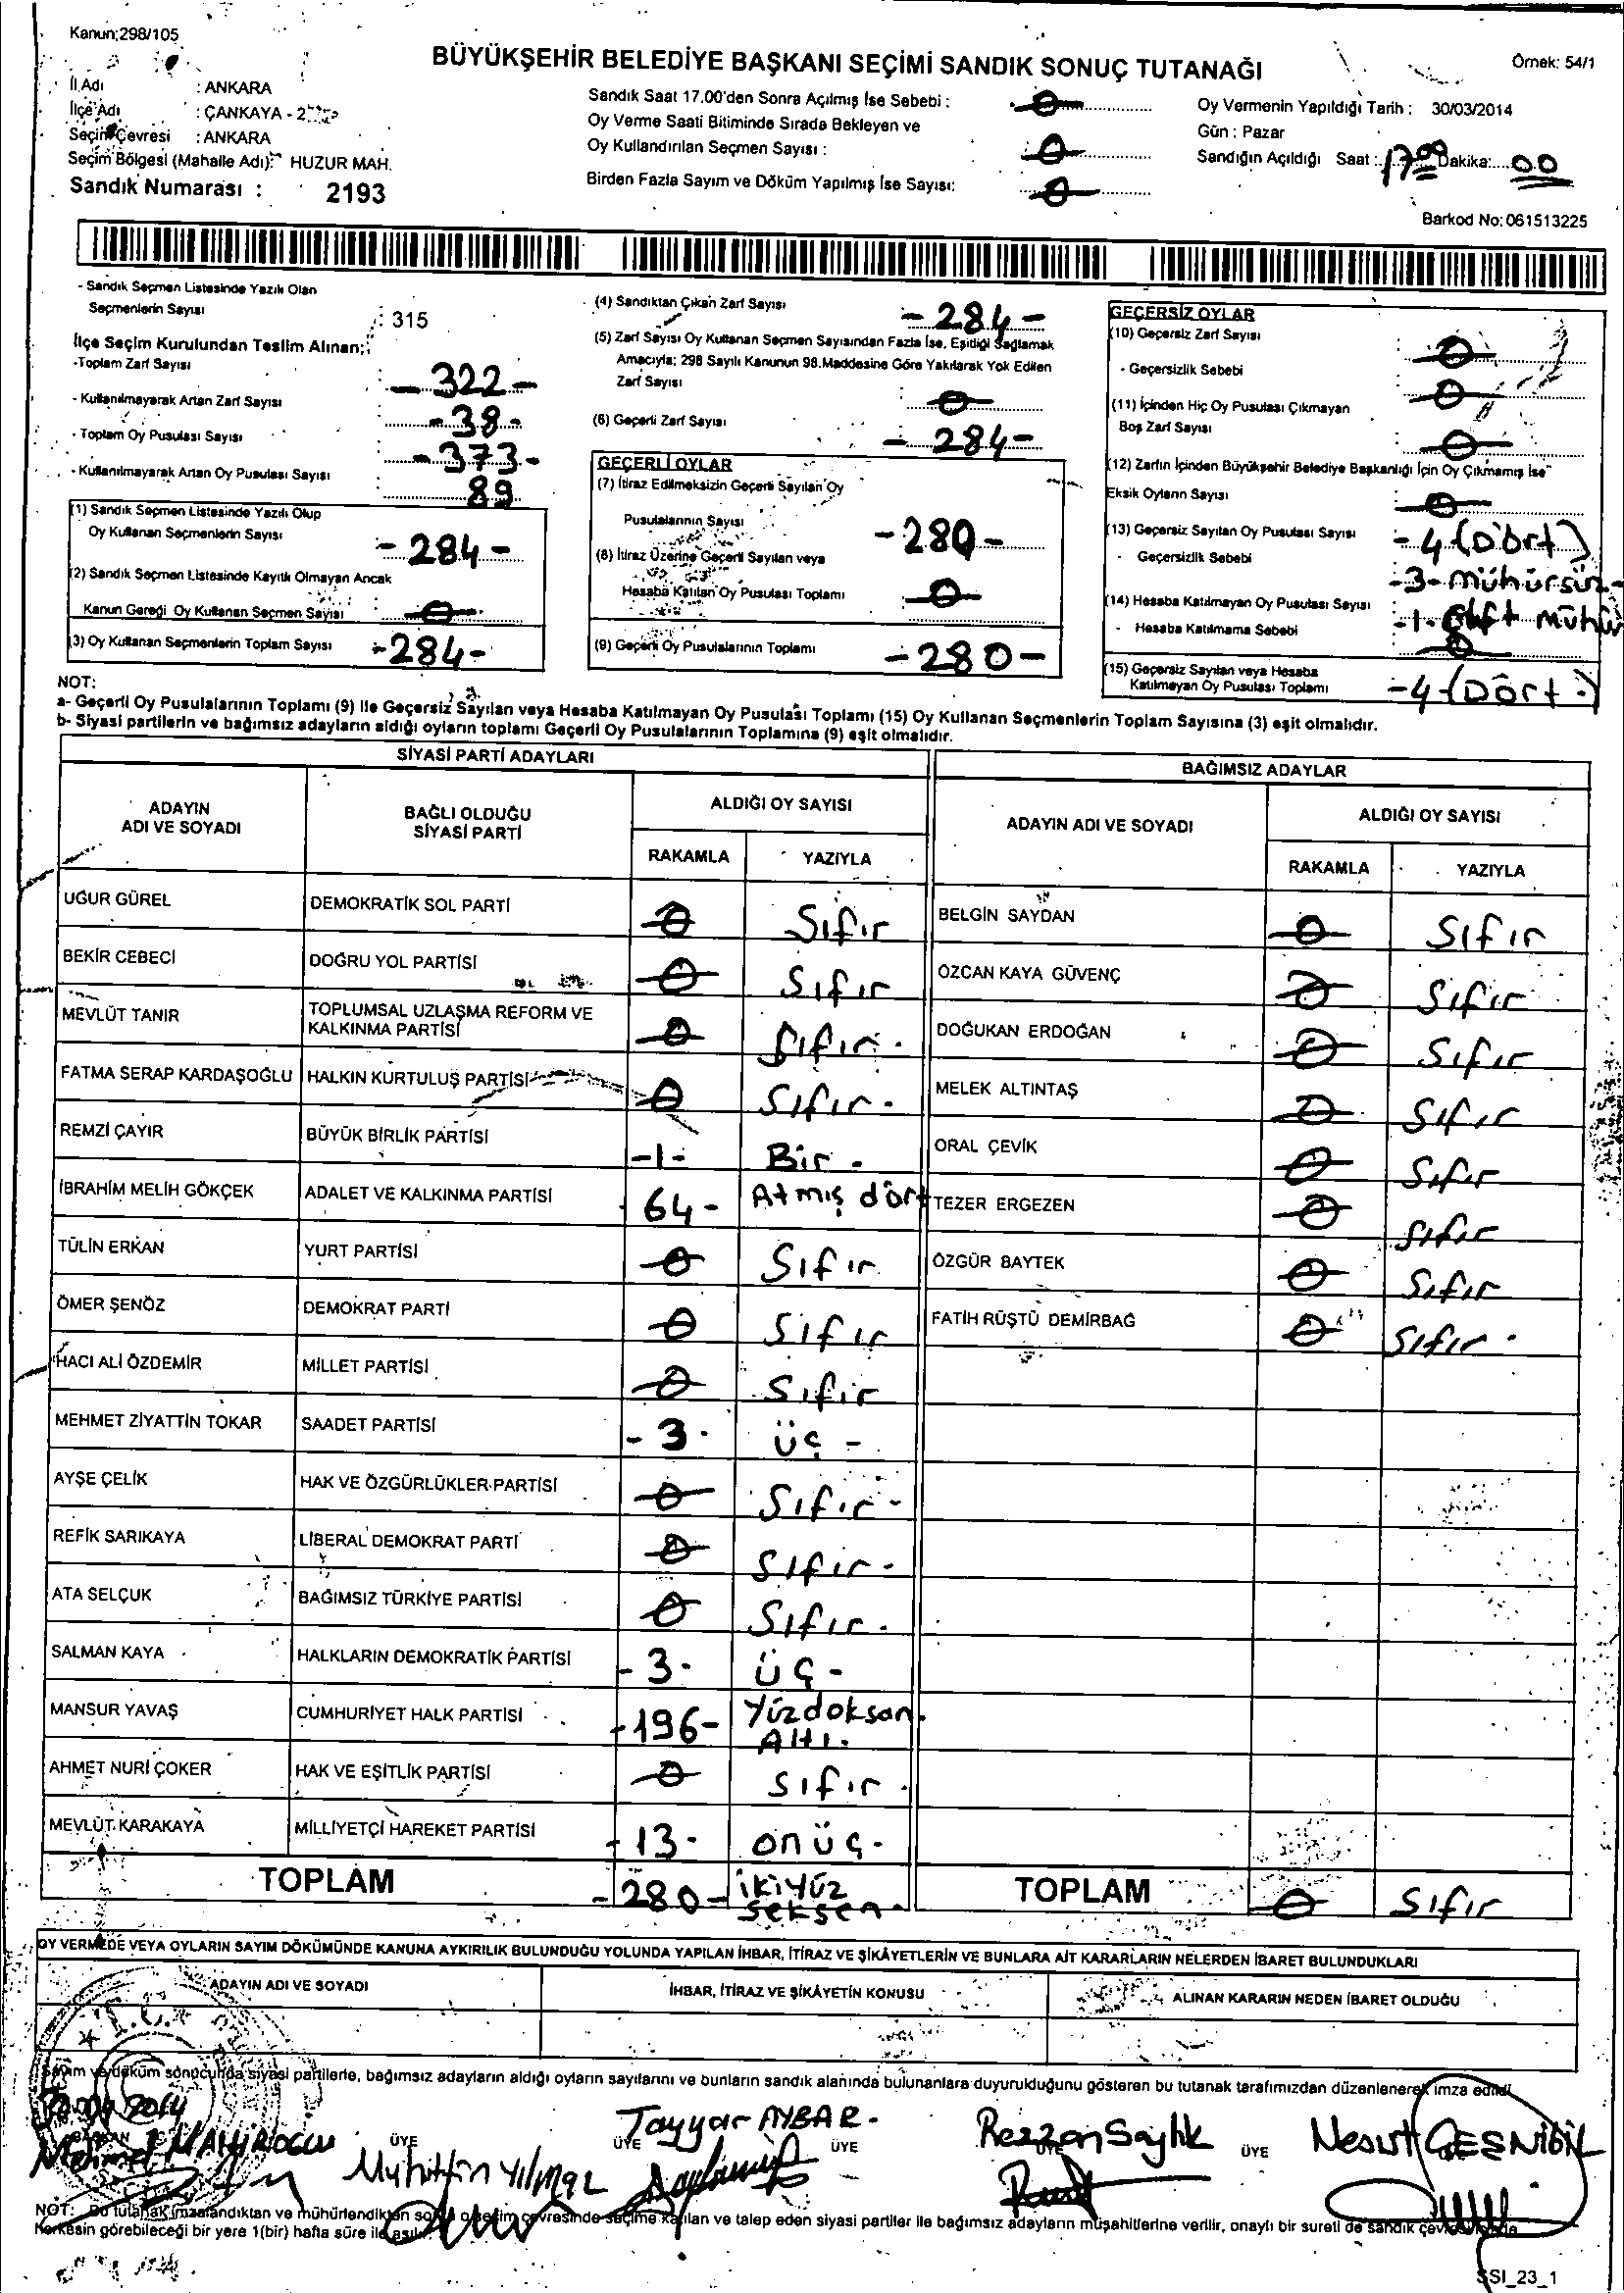 Kanun:298/105
BÜYÜKŞEHİR BELEDİYE BAŞKANI SEÇİMİ SANDIK SONUÇ TUTANAĞI
Örnek: 54/1
İl Adı : ANKARA
İlçe Adı : ÇANKAYA - 2
Seçim Çevresi : ANKARA
Seçim Bölgesi (Mahalle Adı): HUZUR MAH.
Sandık Numarası : 2193
Sandık Saat 17.00'den Sonra Açılmış İse Sebebi : 0
Oy Verme Saati Bitiminde Sırada Bekleyen ve
Oy Kullandırılan Seçmen Sayısı : 0
Birden Fazla Sayım ve Döküm Yapılmış İse Sayısı: 0
Oy Vermenin Yapıldığı Tarih : 30/03/2014
Gün : Pazar
Sandığın Açıldığı Saat : 17 00 Dakika: 00
Barkod No: 061513225
- Sandık Seçmen Listesinde Yazılı Olan
Seçmenlerin Sayısı : 315
İlçe Seçim Kurulundan Teslim Alınan;
-Toplam Zarf Sayısı : -322-
- Kullanılmayarak Artan Zarf Sayısı : -38-
- Toplam Oy Pusulası Sayısı : -373-
- Kullanılmayarak Artan Oy Pusulası Sayısı : 89
(1) Sandık Seçmen Listesinde Yazılı Olup
Oy Kullanan Seçmenlerin Sayısı : -284-
(2) Sandık Seçmen Listesinde Kayıtlı Olmayan Ancak
Kanun Gereği Oy Kullanan Seçmen Sayısı : 0
(3) Oy Kullanan Seçmenlerin Toplam Sayısı : -284-
(4) Sandıktan Çıkan Zarf Sayısı : -284-
(5) Zarf Sayısı Oy Kullanan Seçmen Sayısından Fazla İse, Eşitliği Sağlamak
Amacıyla; 298 Sayılı Kanunun 98.Maddesine Göre Yakılarak Yok Edilen
Zarf Sayısı : 0
(6) Geçerli Zarf Sayısı : -284-
GEÇERLİ OYLAR
(7) İtiraz Edilmeksizin Geçerli Sayılan Oy
Pusulalarının Sayısı : -280-
(8) İtiraz Üzerine Geçerli Sayılan veya
Hesaba Katılan Oy Pusulası Toplamı : 0
(9) Geçerli Oy Pusulalarının Toplamı : -280-
GEÇERSİZ OYLAR
(10) Geçersiz Zarf Sayısı : 0
- Geçersizlik Sebebi : 0
(11) İçinden Hiç Oy Pusulası Çıkmayan
Boş Zarf Sayısı : 0
(12) Zarfın İçinden Büyükşehir Belediye Başkanlığı İçin Oy Çıkmamış İse
Eksik Oyların Sayısı : 0
(13) Geçersiz Sayılan Oy Pusulası Sayısı : -4 (Dört)
- Geçersizlik Sebebi : -3- mühürsüz-
(14) Hesaba Katılmayan Oy Pusulası Sayısı : -1- Çift mühür
- Hesaba Katılmama Sebebi : 0
(15) Geçersiz Sayılan veya Hesaba
Katılmayan Oy Pusulası Toplamı -4 (Dört-)
NOT:
a- Geçerli Oy Pusulalarının Toplamı (9) ile Geçersiz Sayılan veya Hesaba Katılmayan Oy Pusulası Toplamı (15) Oy Kullanan Seçmenlerin Toplam Sayısına (3) eşit olmalıdır.
b- Siyasi partilerin ve bağımsız adayların aldığı oyların toplamı Geçerli Oy Pusulalarının Toplamına (9) eşit olmalıdır.
SİYASİ PARTİ ADAYLARI
ADAYIN ADI VE SOYADI
BAĞLI OLDUĞU SİYASİ PARTİ
ALDIĞI OY SAYISI
RAKAMLA YAZIYLA
UĞUR GÜREL DEMOKRATİK SOL PARTİ 0 Sıfır
BEKİR CEBECİ DOĞRU YOL PARTİSİ 0 Sıfır
MEVLÜT TANIR TOPLUMSAL UZLAŞMA REFORM VE KALKINMA PARTİSİ 0 Sıfır.
FATMA SERAP KARDAŞOĞLU HALKIN KURTULUŞ PARTİSİ 0 Sıfır.
REMZİ ÇAYIR BÜYÜK BİRLİK PARTİSİ -1- Bir -
İBRAHİM MELİH GÖKÇEK ADALET VE KALKINMA PARTİSİ 64- Atmış dört
TÜLİN ERKAN YURT PARTİSİ 0 Sıfır
ÖMER ŞENÖZ DEMOKRAT PARTİ 0 Sıfır
HACI ALİ ÖZDEMİR MİLLET PARTİSİ 0 Sıfır
MEHMET ZİYATTİN TOKAR SAADET PARTİSİ -3- üç -
AYŞE ÇELİK HAK VE ÖZGÜRLÜKLER PARTİSİ 0 Sıfır-
REFİK SARIKAYA LİBERAL DEMOKRAT PARTİ 0 Sıfır-
ATA SELÇUK BAĞIMSIZ TÜRKİYE PARTİSİ 0 Sıfır.
SALMAN KAYA HALKLARIN DEMOKRATİK PARTİSİ -3- üç-
MANSUR YAVAŞ CUMHURİYET HALK PARTİSİ -196- Yüzdoksan Altı.
AHMET NURİ ÇOKER HAK VE EŞİTLİK PARTİSİ 0 Sıfır.
MEVLÜT KARAKAYA MİLLİYETÇİ HAREKET PARTİSİ -13- onüç-
TOPLAM -280- ikiyüz seksen-
BAĞIMSIZ ADAYLAR
ADAYIN ADI VE SOYADI
ALDIĞI OY SAYISI
RAKAMLA YAZIYLA
BELGİN SAYDAN 0 Sıfır
ÖZCAN KAYA GÜVENÇ 0 Sıfır
DOĞUKAN ERDOĞAN 0 Sıfır
MELEK ALTINTAŞ 0 Sıfır
ORAL ÇEVİK 0 Sıfır
TEZER ERGEZEN 0 Sıfır
ÖZGÜR BAYTEK 0 Sıfır
FATİH RÜŞTÜ DEMİRBAĞ 0 Sıfır.
TOPLAM 0 Sıfır
OY VERMEDE VEYA OYLARIN SAYIM DÖKÜMÜNDE KANUNA AYKIRILIK BULUNDUĞU YOLUNDA YAPILAN İHBAR, İTİRAZ VE ŞİKÂYETLERİN VE BUNLARA AİT KARARLARIN NELERDEN İBARET BULUNDUKLARI
ADAYIN ADI VE SOYADI İHBAR, İTİRAZ VE ŞİKÂYETİN KONUSU ALINAN KARARIN NEDEN İBARET OLDUĞU
T.C.
Sayım ve döküm sonucunda siyasi partilerle, bağımsız adayların aldığı oyların sayılarını ve bunların sandık alanında bulunanlara duyurulduğunu gösteren bu tutanak tarafımızdan düzenlenerek imza edildi
2014
Tayyar AYBAR- Rezzan Saylık
BAŞKAN ÜYE ÜYE ÜYE ÜYE ÜYE
Muhittin Yılmaz
NOT: Bu tutanak imzalandıktan ve mühürlendikten sonra o seçim çevresinde seçime katılan ve talep eden siyasi partiler ile bağımsız adayların müşahitlerine verilir, onaylı bir sureti de sandık çevresinde
herkesin görebileceği bir yere 1(bir) hafta süre ile asılır.
SSI_23_1